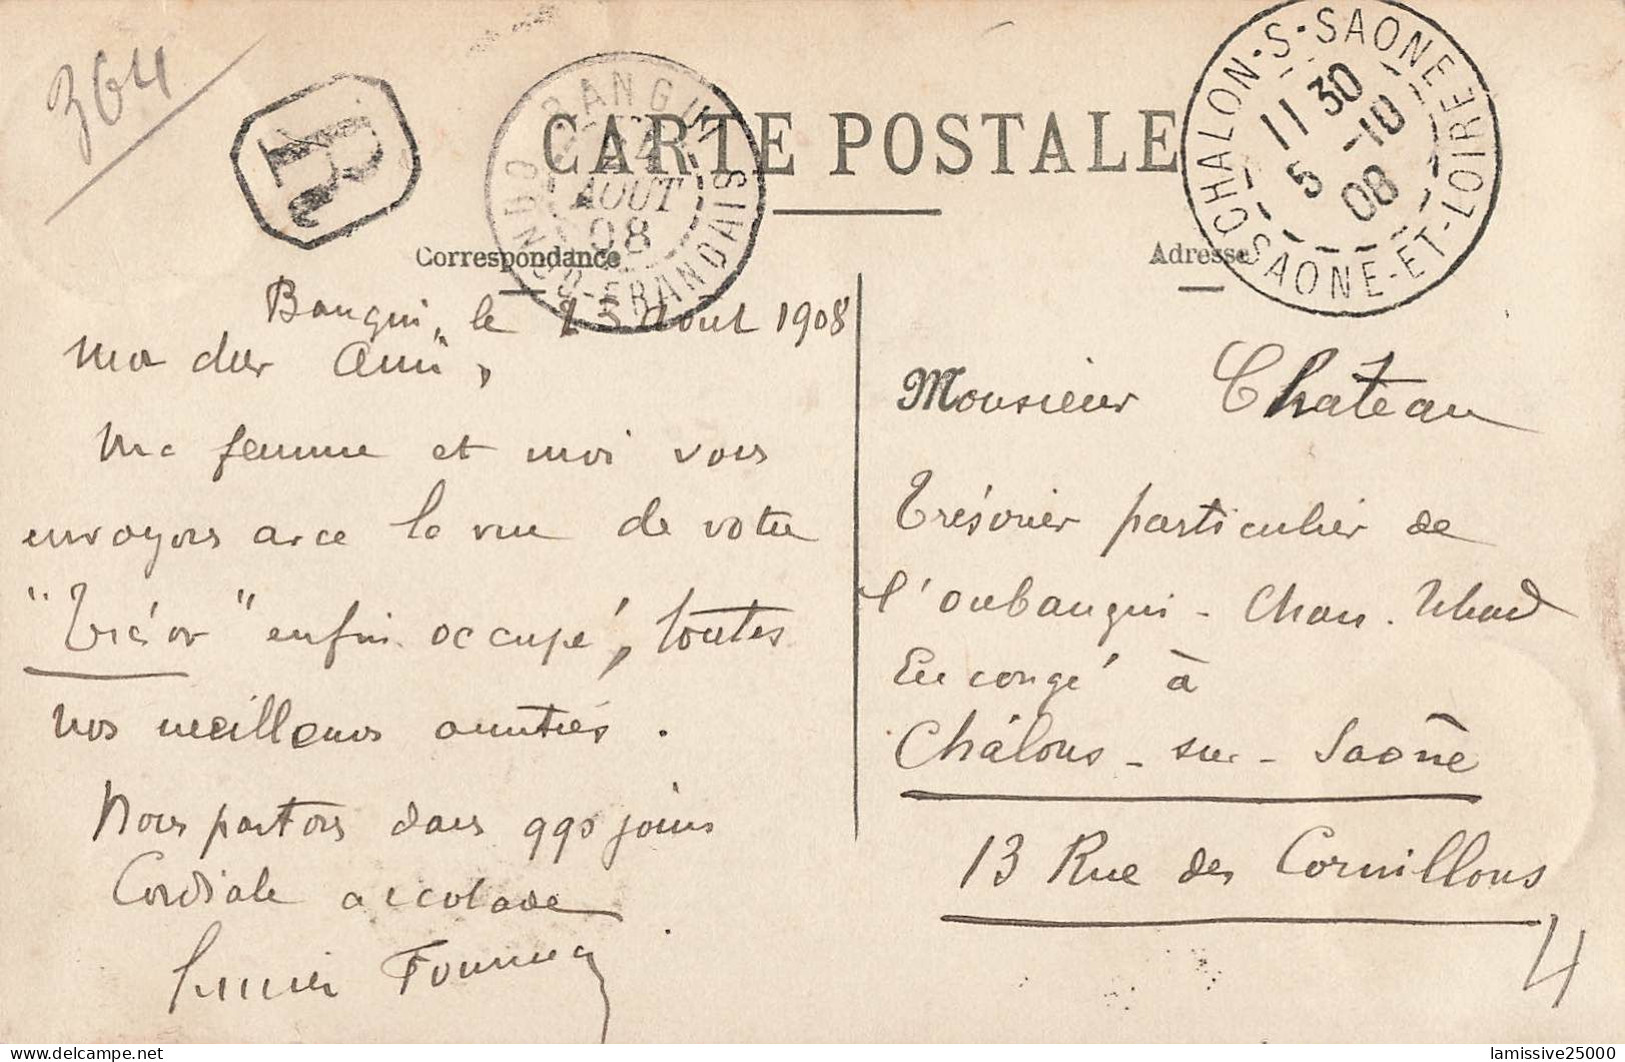 364
R
BANGUI
CONGO-FRANÇAIS
24
AOUT
08
CARTE POSTALE
CHALON-S-SAONE
SAONE-ET-LOIRE
11 30
5 -10
08
Correspondance
Adresse
Bangui, le 25 Août 1908
Mon cher Ami,
Ma femme et moi vous
envoyons avec la vue de votre
"Trésor" enfin occupé, toutes
nos meilleures amitiés.
Nous partons dans qqs jours
Cordiale accolade
Fournier
Monsieur Chateau
Trésorier particulier de
l'Oubangui - Chari. Tchad
En congé à
Châlons - sur - Saône
13 Rue des Cornillons
4
lamissive25000